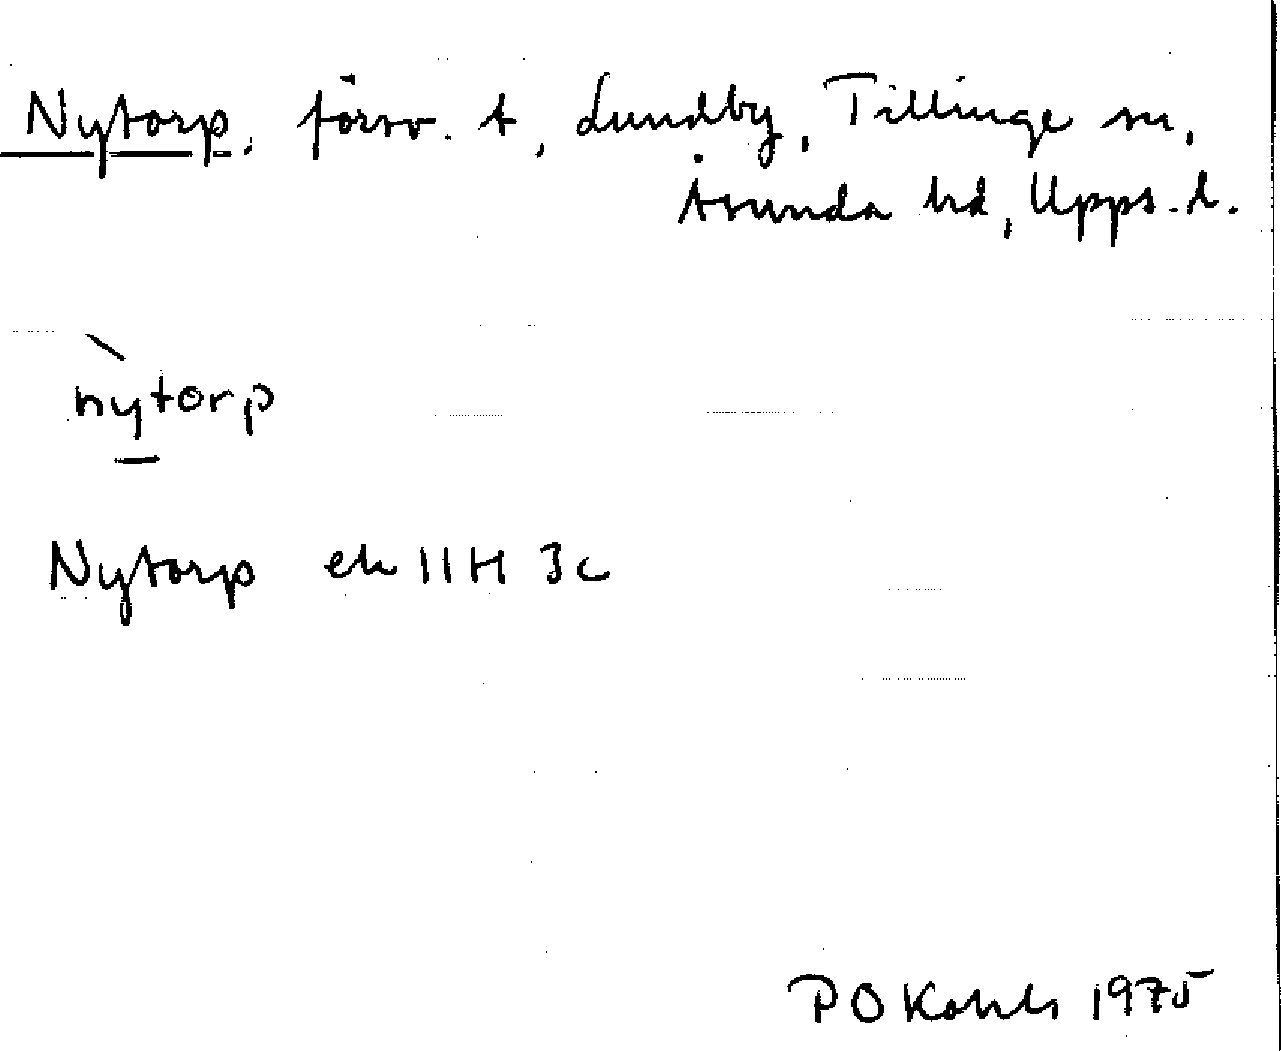 Nytorp, försv. t, Lundby, Tillinge sn,
Åsunda hd, Upps. l.
nytorp
Nytorp ek 11H 3c
P O 1975